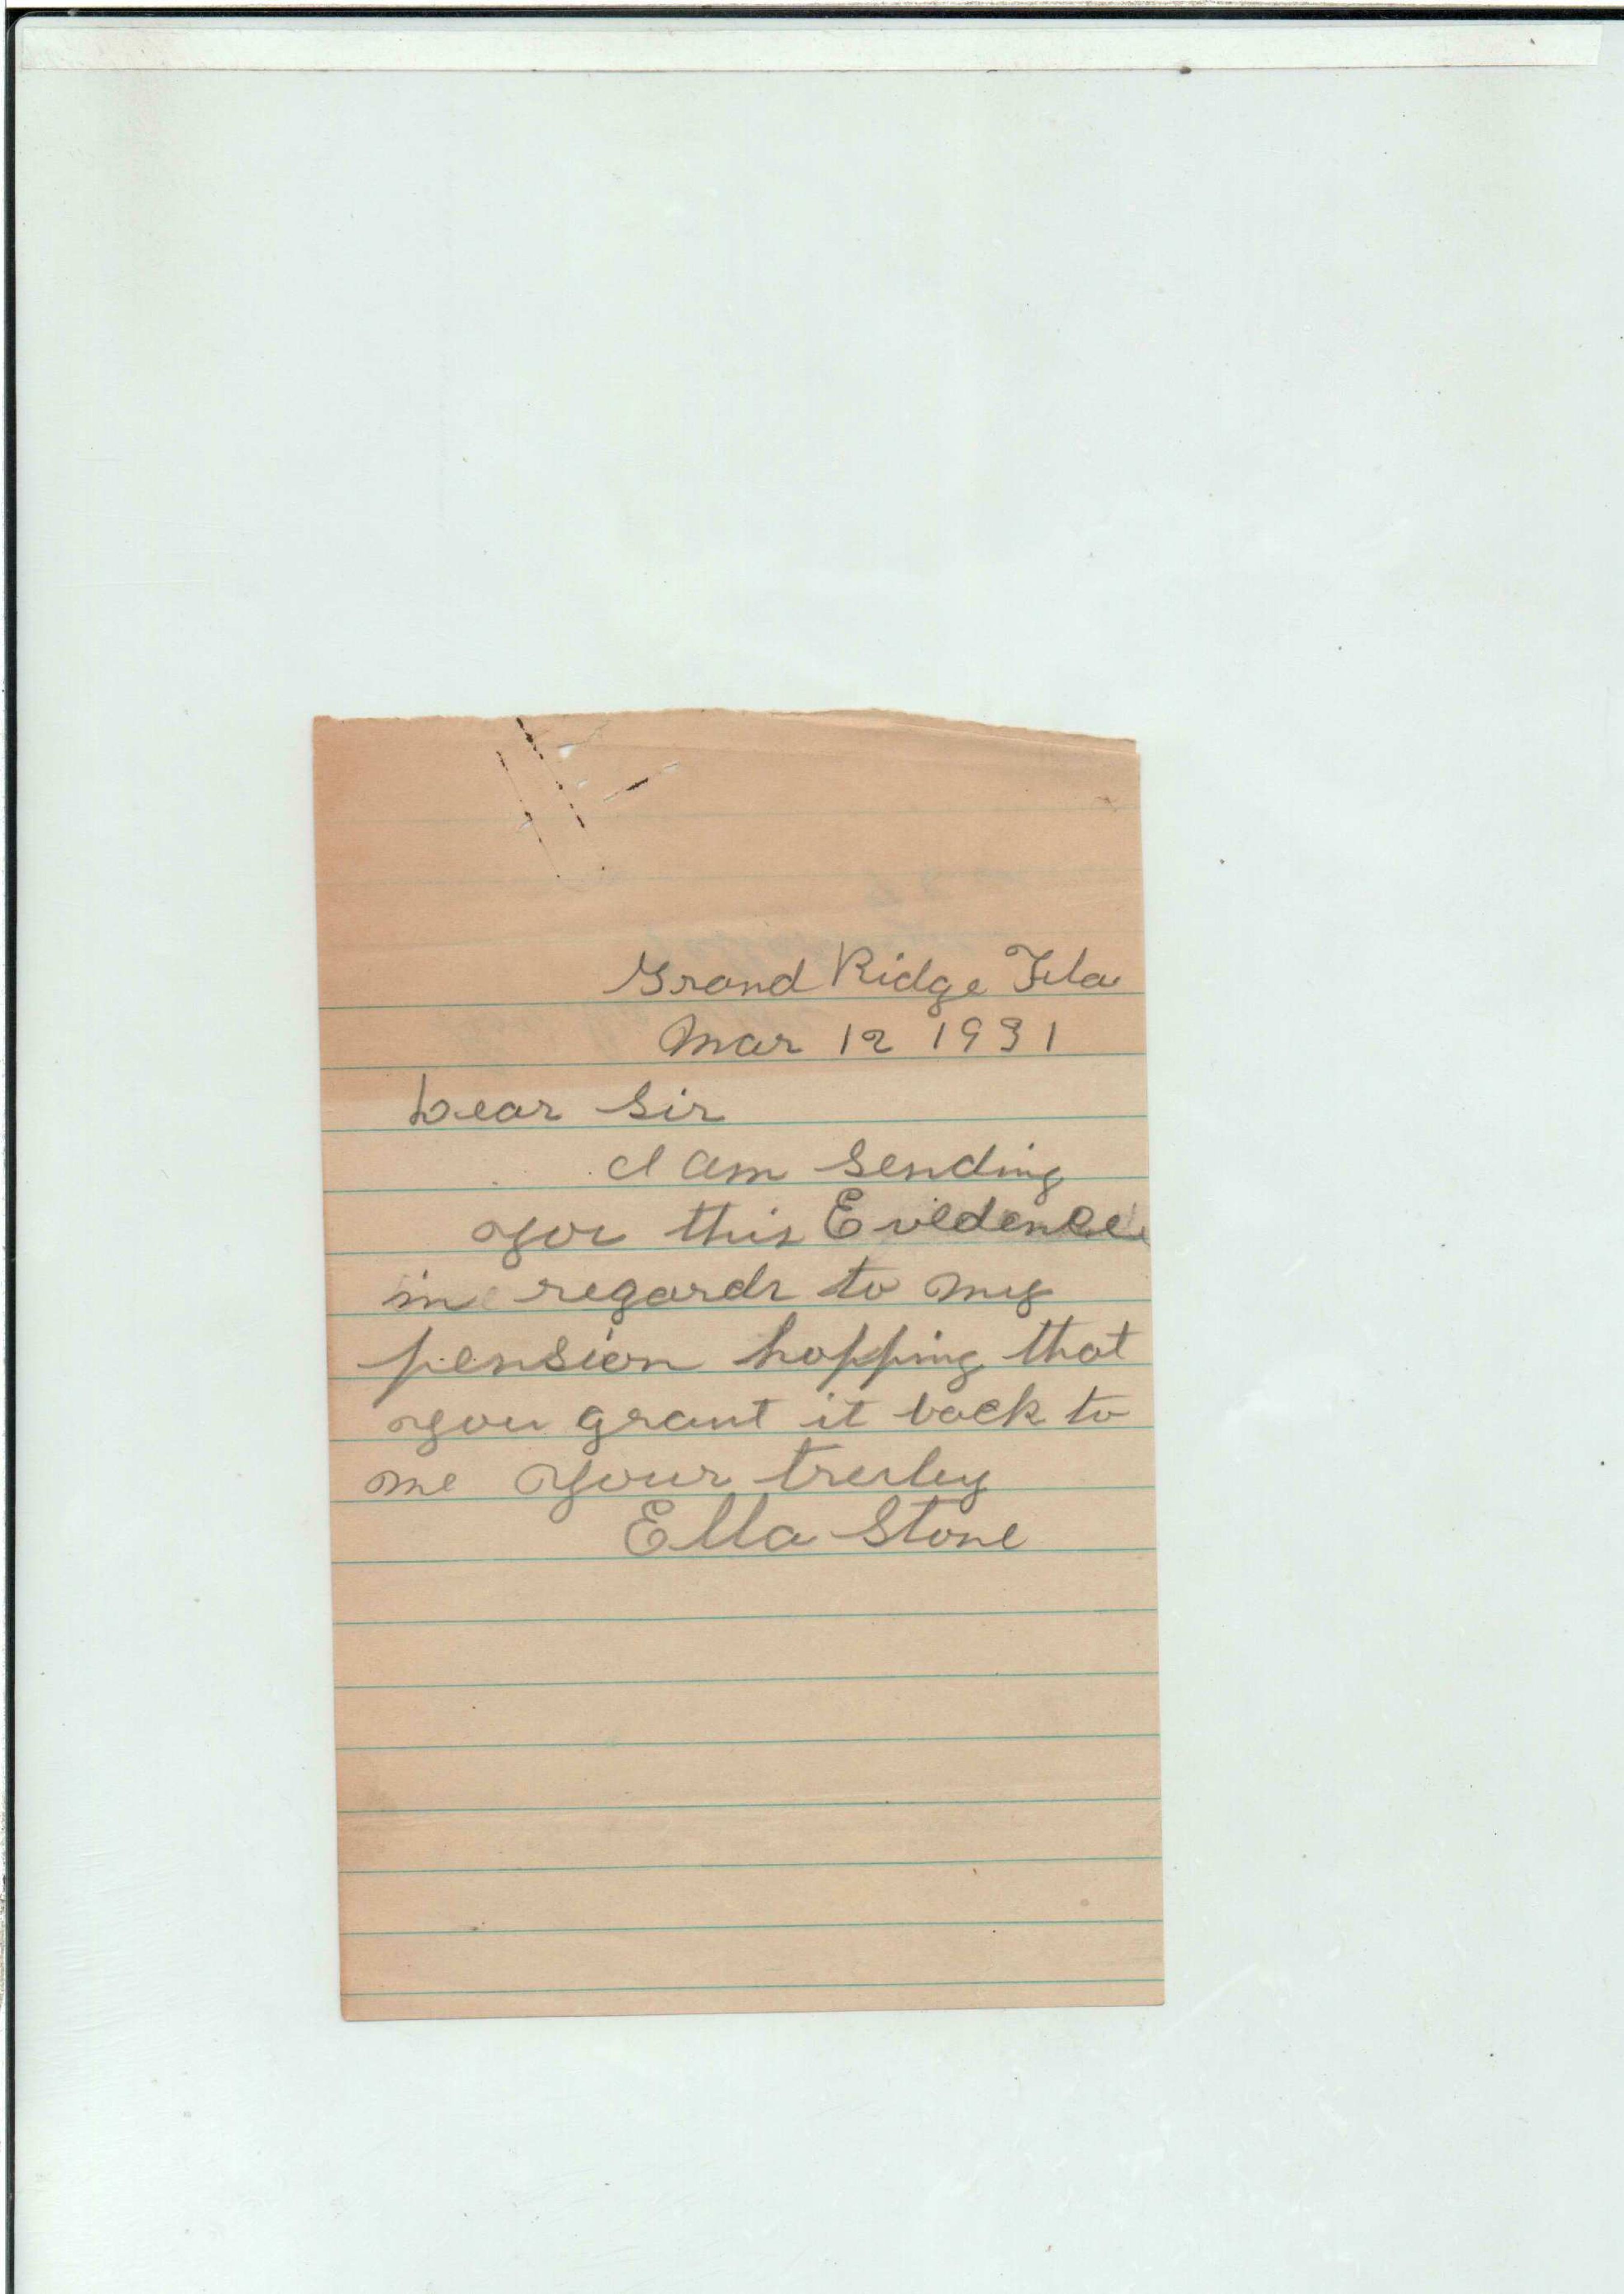 Grand Ridge Fla
Mar 12 1931
Dear Sir
I am sending
you this Evidence
in regards to my
pension hopping that
you grant it back to
me your truley
Ella Stone